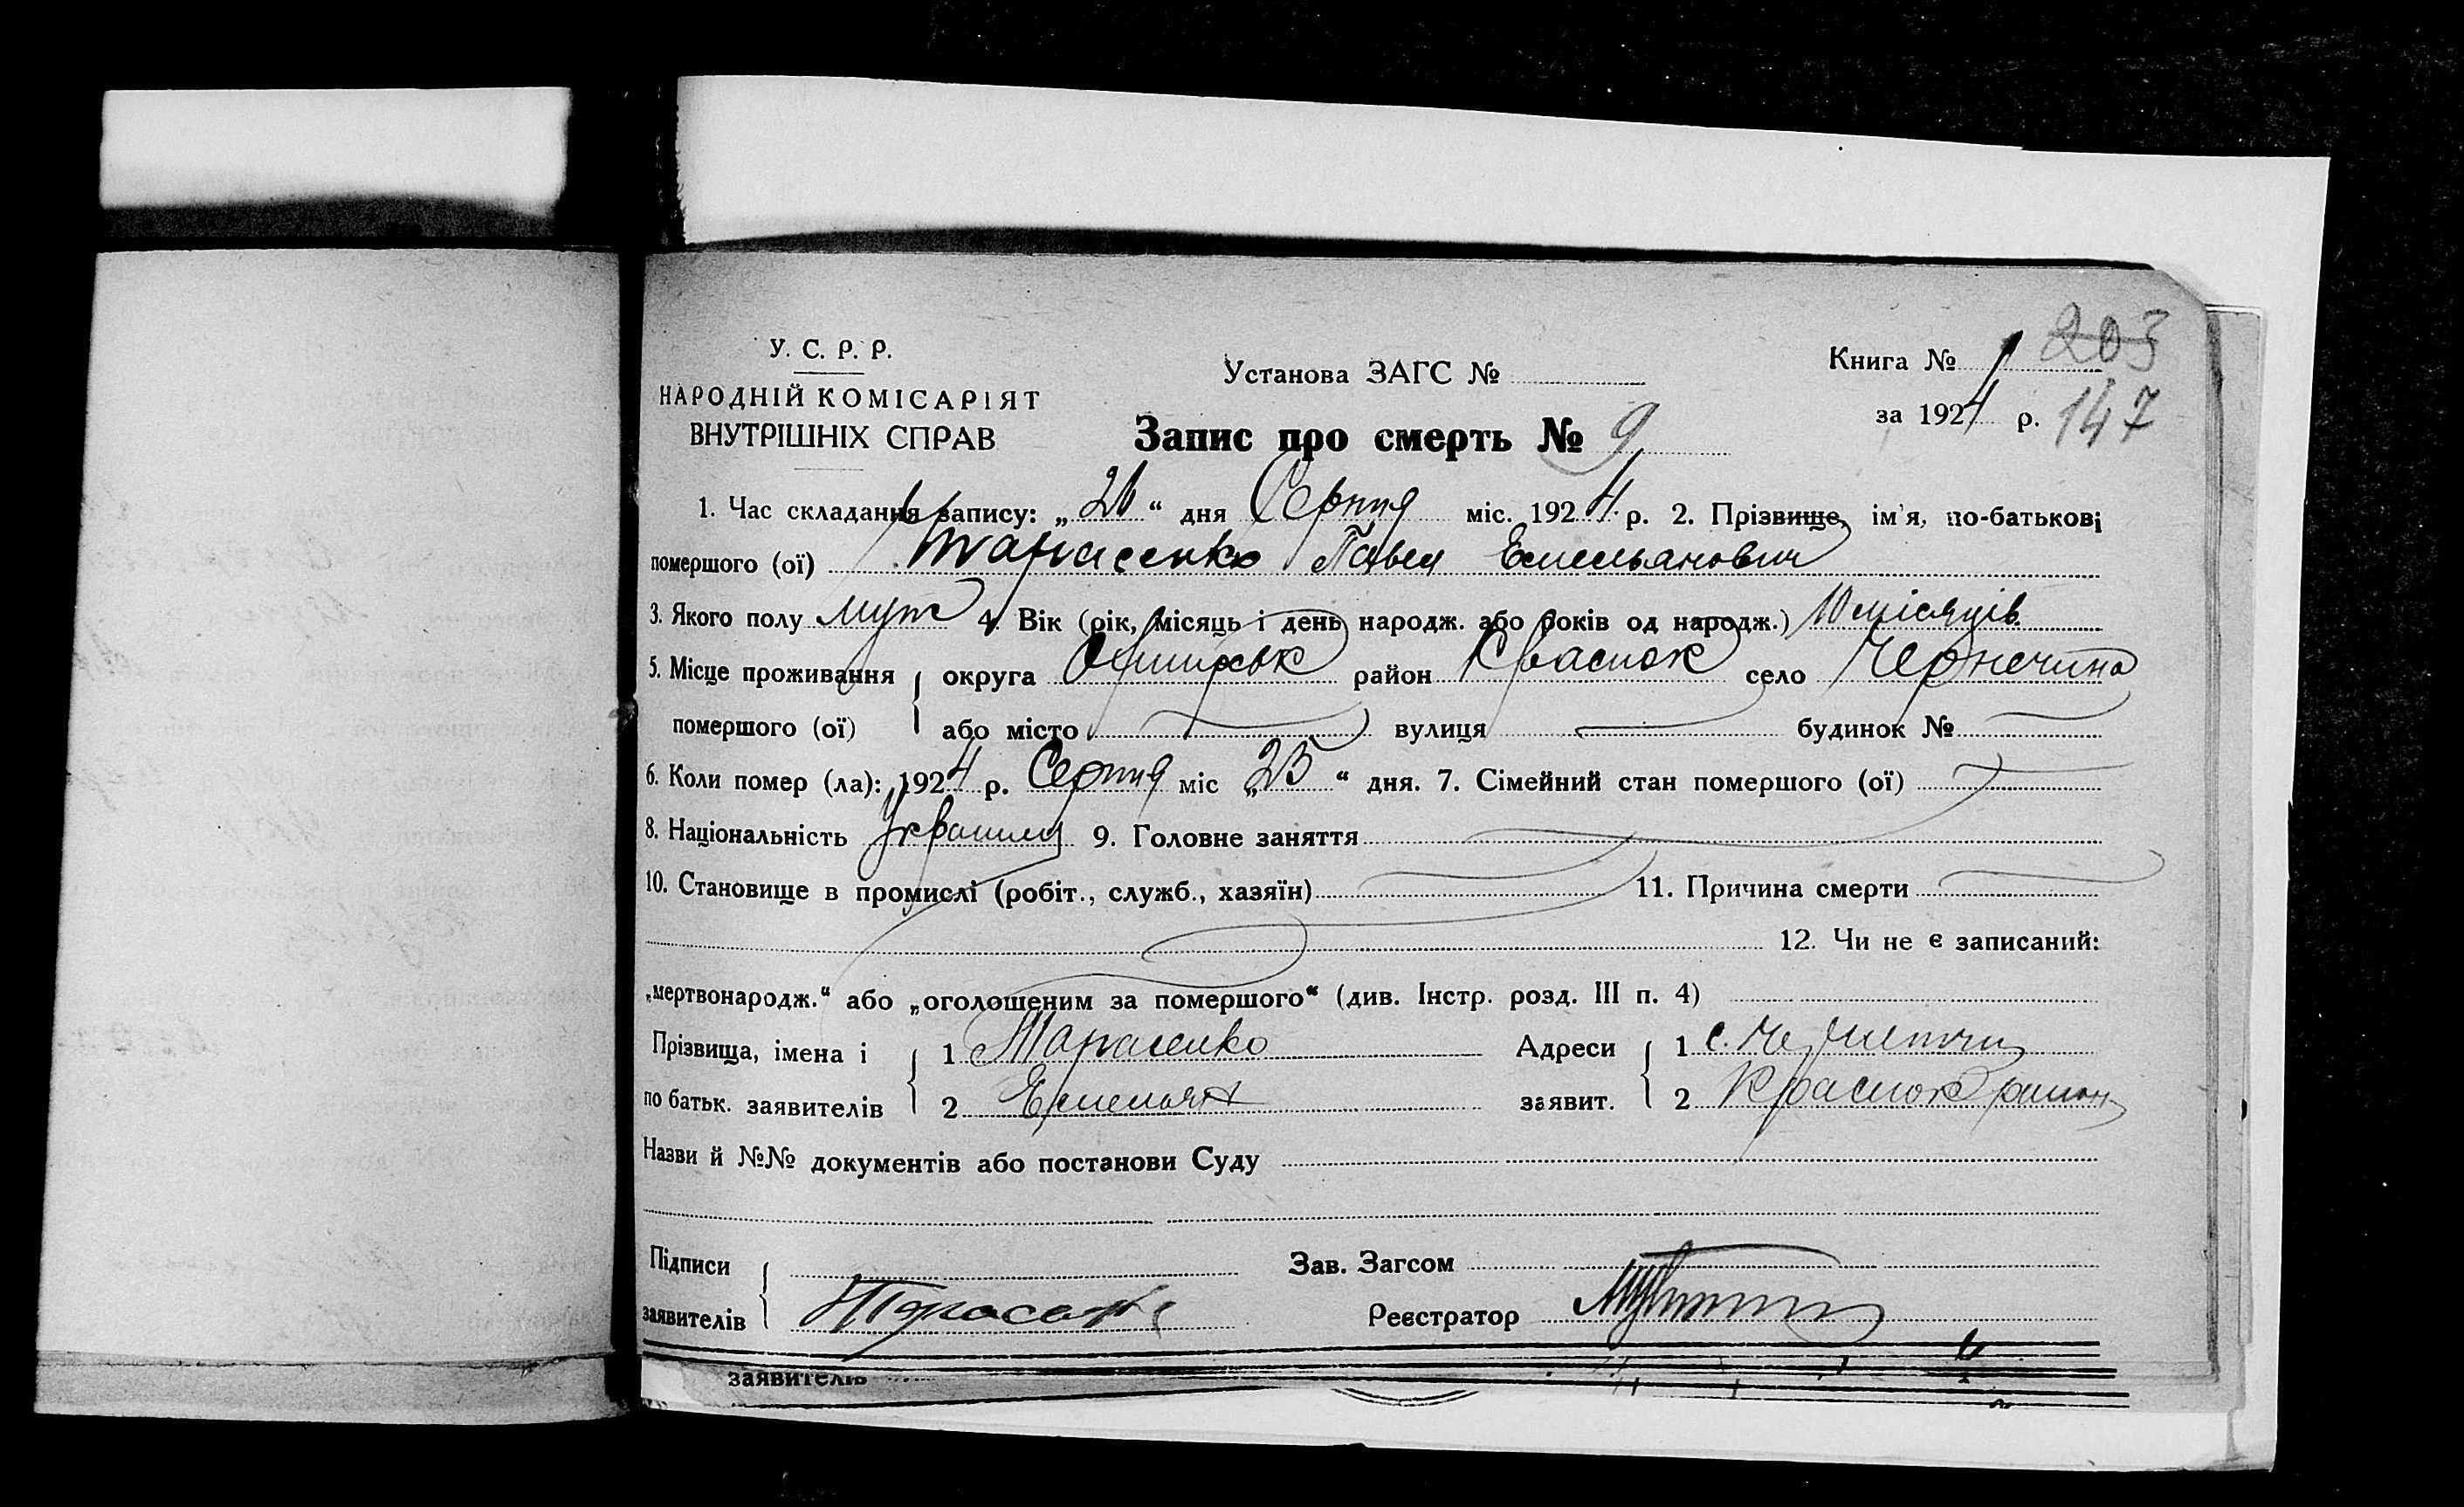 У. С. Р. Р.
НАРОДНІЙ КОМІСАРІЯТ
ВНУТРІШНІХ СПРАВ
Установа ЗАГС №
Книга № 1
203
за 1924 р.
147
Запис про смерть № 9
1. Час складання запису: „26“ дня Серпня міс. 1924 р. 2. Прізвище, ім'я, по-батькові
помершого (ої) Тарасенко Павел Емельянович
3. Якого полу муж 4. Вік (рік, місяць і день народж. або років од народж.) 10 місяців
5. Місце проживання округа район Краснок село Чернечина
помершого (ої) або місто вулиця будинок №
6. Коли помер (ла): 1924 р. Серпня міс „25“ дня. 7. Сімейний стан помершого (ої)
8. Національність 9. Головне заняття
10. Становище в промислі (робіт., служб., хазяїн) 11. Причина смерти
12. Чи не є записаний:
„мертвонародж.“ або „оголошеним за помершого“ (див. Інстр. розд. III п. 4)
Прізвища, імена і 1 Тарасенко Адреси 1 с.
по батьк. заявителів 2 Емельян заявит. 2 Краснок
Назви й №№ документів або постанови Суду
Підписи Зав. Загсом
заявителів Реєстратор
заявителів